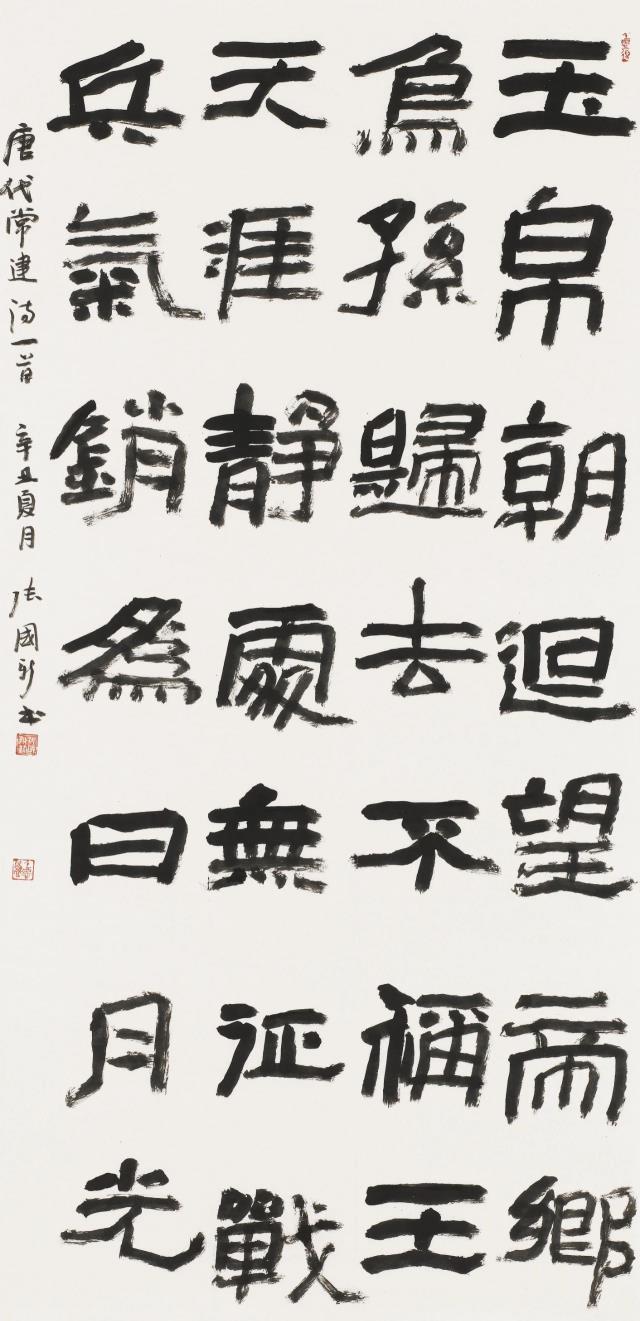 玉帛朝迴望帝鄉
烏孫歸去不稱王
天涯靜處無征戰
兵氣銷為日月光
唐代常建詩一首 辛丑夏月 張國新書